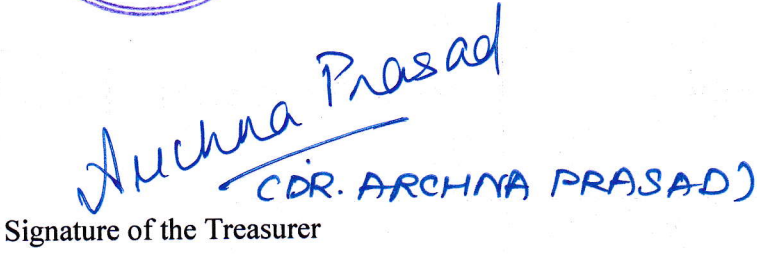 Archna Prasad
(DR. ARCHNA PRASAD)
Signature of the Treasurer